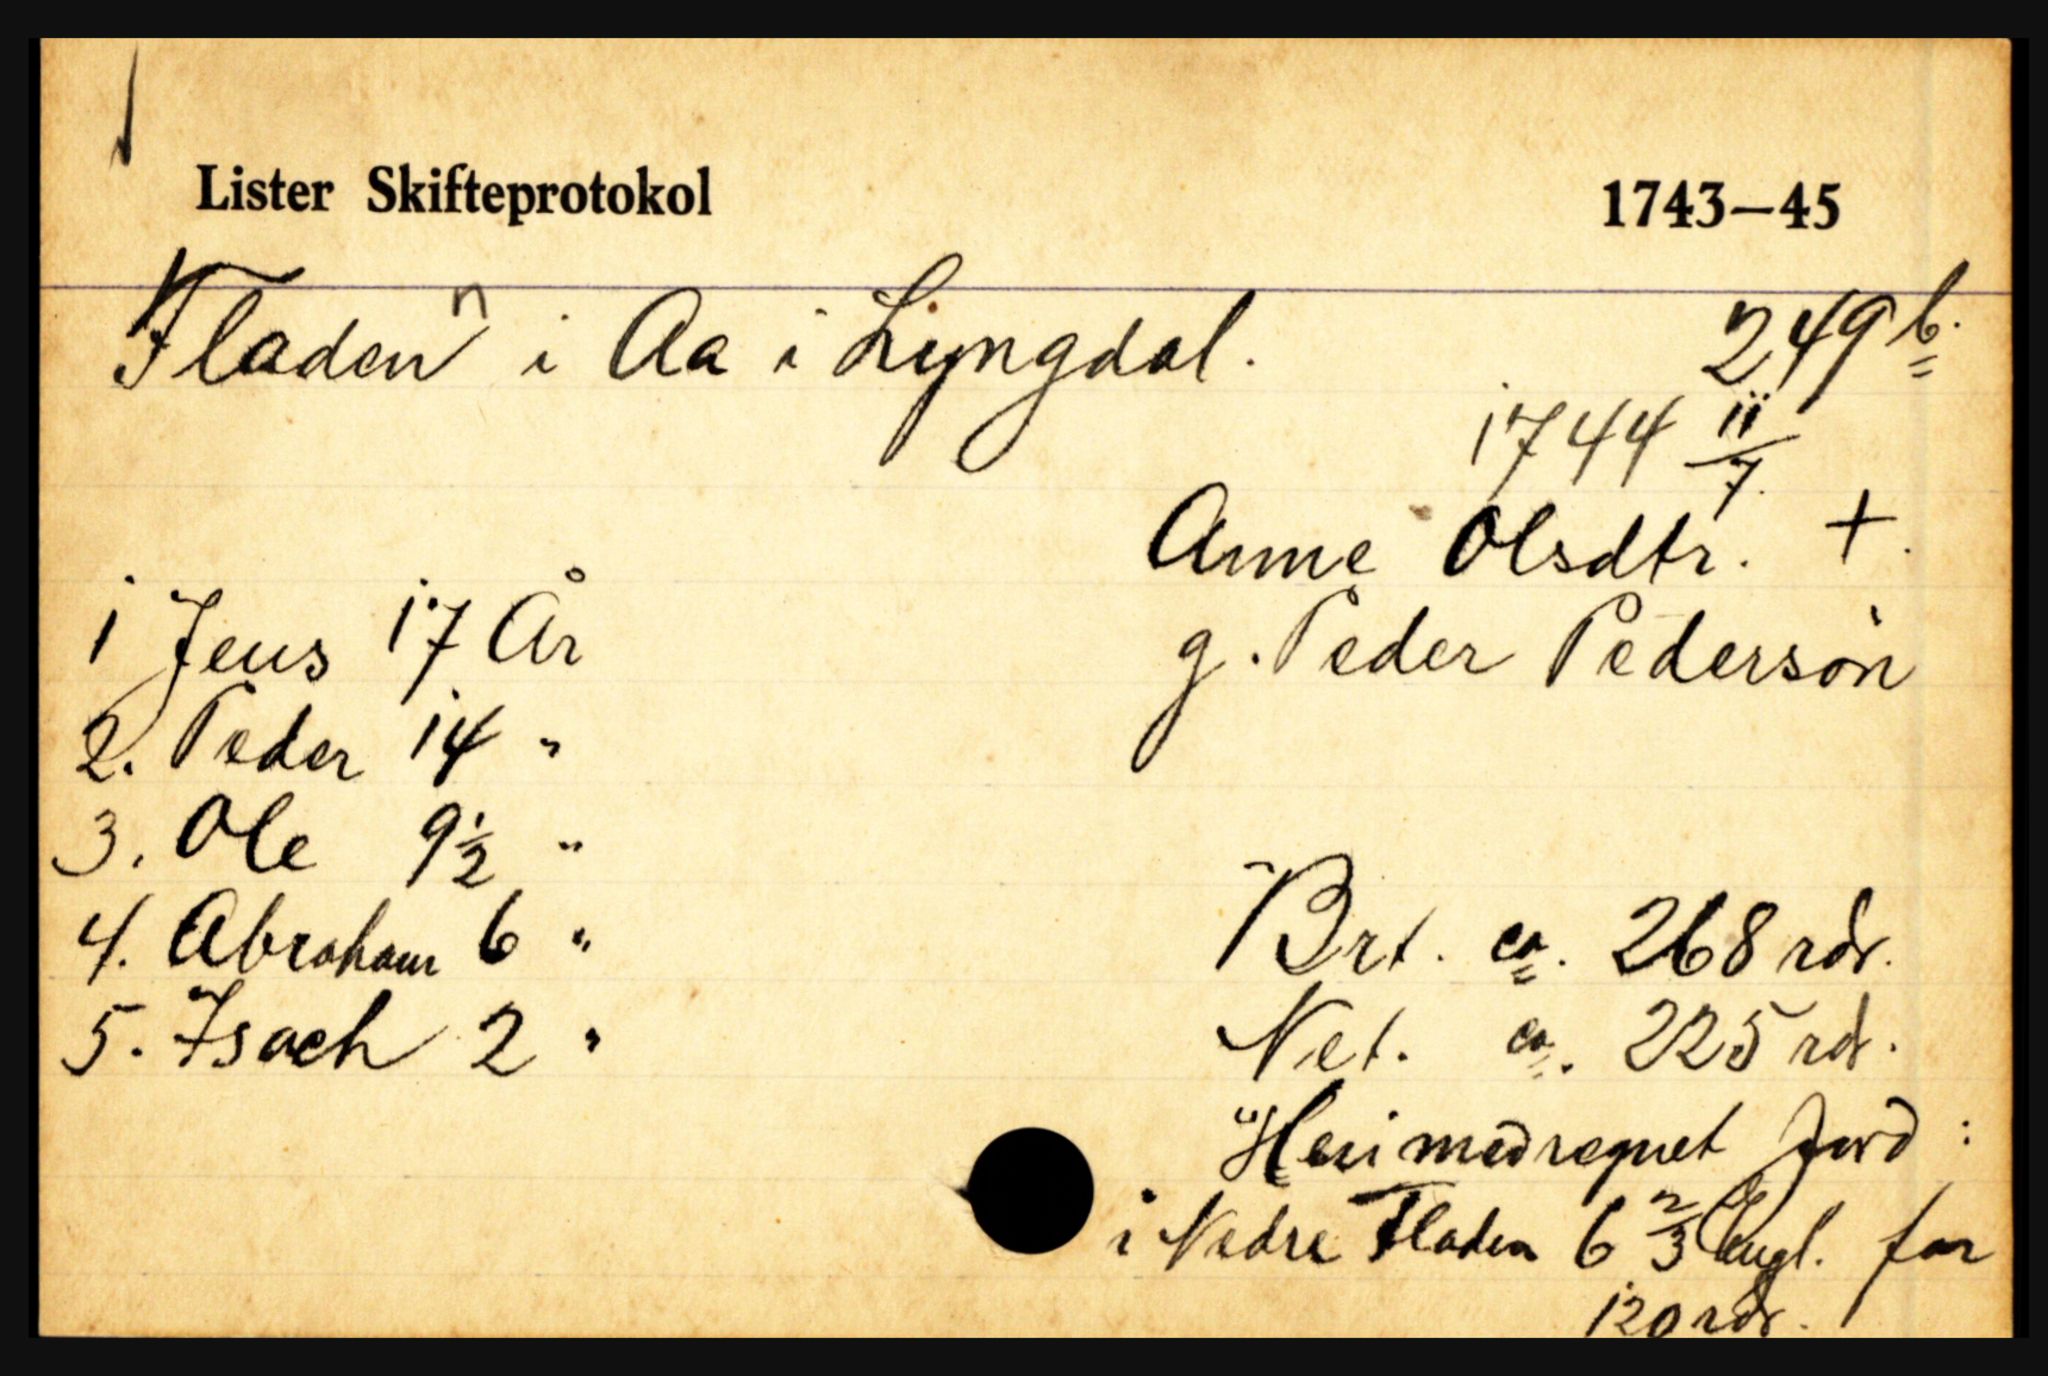 Lister Skifteprotokol 1743–45
Fladen n i Aa i Lyngdal. 249 b.
1744 11/7.
Anne Olsdtr. +.
1 Jens 17 År g. Peder Pederson
2. Peder 14 "
3. Ole 9 1/2 "
4. Abraham 6 " Brt. ca. 268 rdr.
5. Isach 2 " Net. ca. 225 rdr.
Heri medregnet Jord :
i Nedre Fladen 6 2/3 Engl. for
120 rdr.